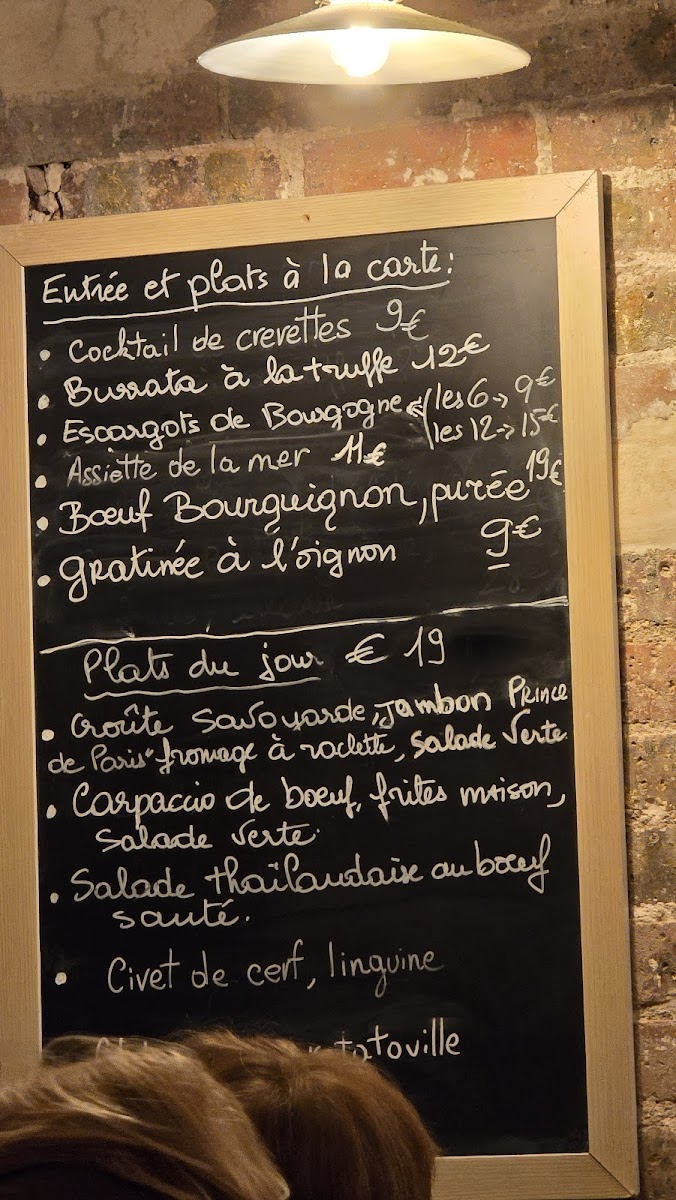 Entrée et plats à la carte:
• Cocktail de crevettes 9€
• Burrata à la truffe 12€
• Escargots de Bourgogne (les 6 → 9€
(les 12 → 15€
• Assiette de la mer 11€
• Bœuf Bourguignon, purée 19€
• gratinée à l'oignon 9€
Plats du jour € 19
• Croûte Savoyarde, jambon Prince
de Paris "fromage à raclette, Salade Verte
• Carpaccio de boeuf, frites maison,
Salade Verte.
• Salade thaïlandaise au boeuf
sauté.
• Civet de cerf, linguine
ratatoville